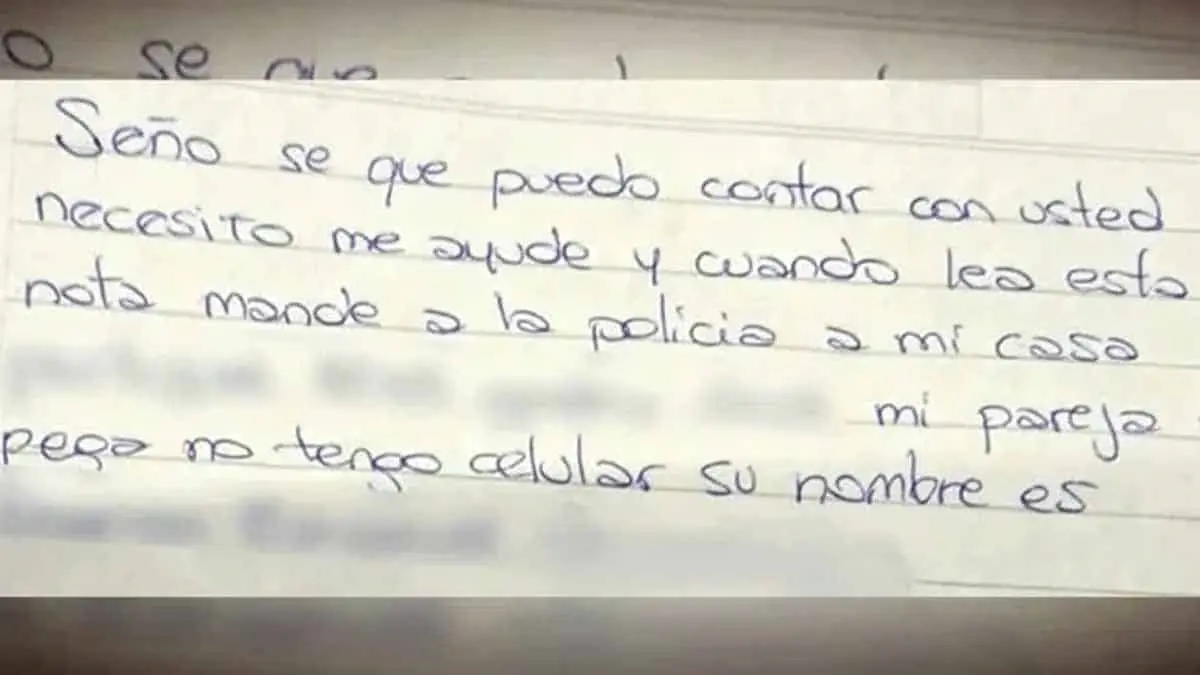 o se que
Seño se que puedo contar con usted
necesito me ayude y cuando lea esta
nota mande a la policia a mi casa
mi pareja
pega no tengo celular su nombre es